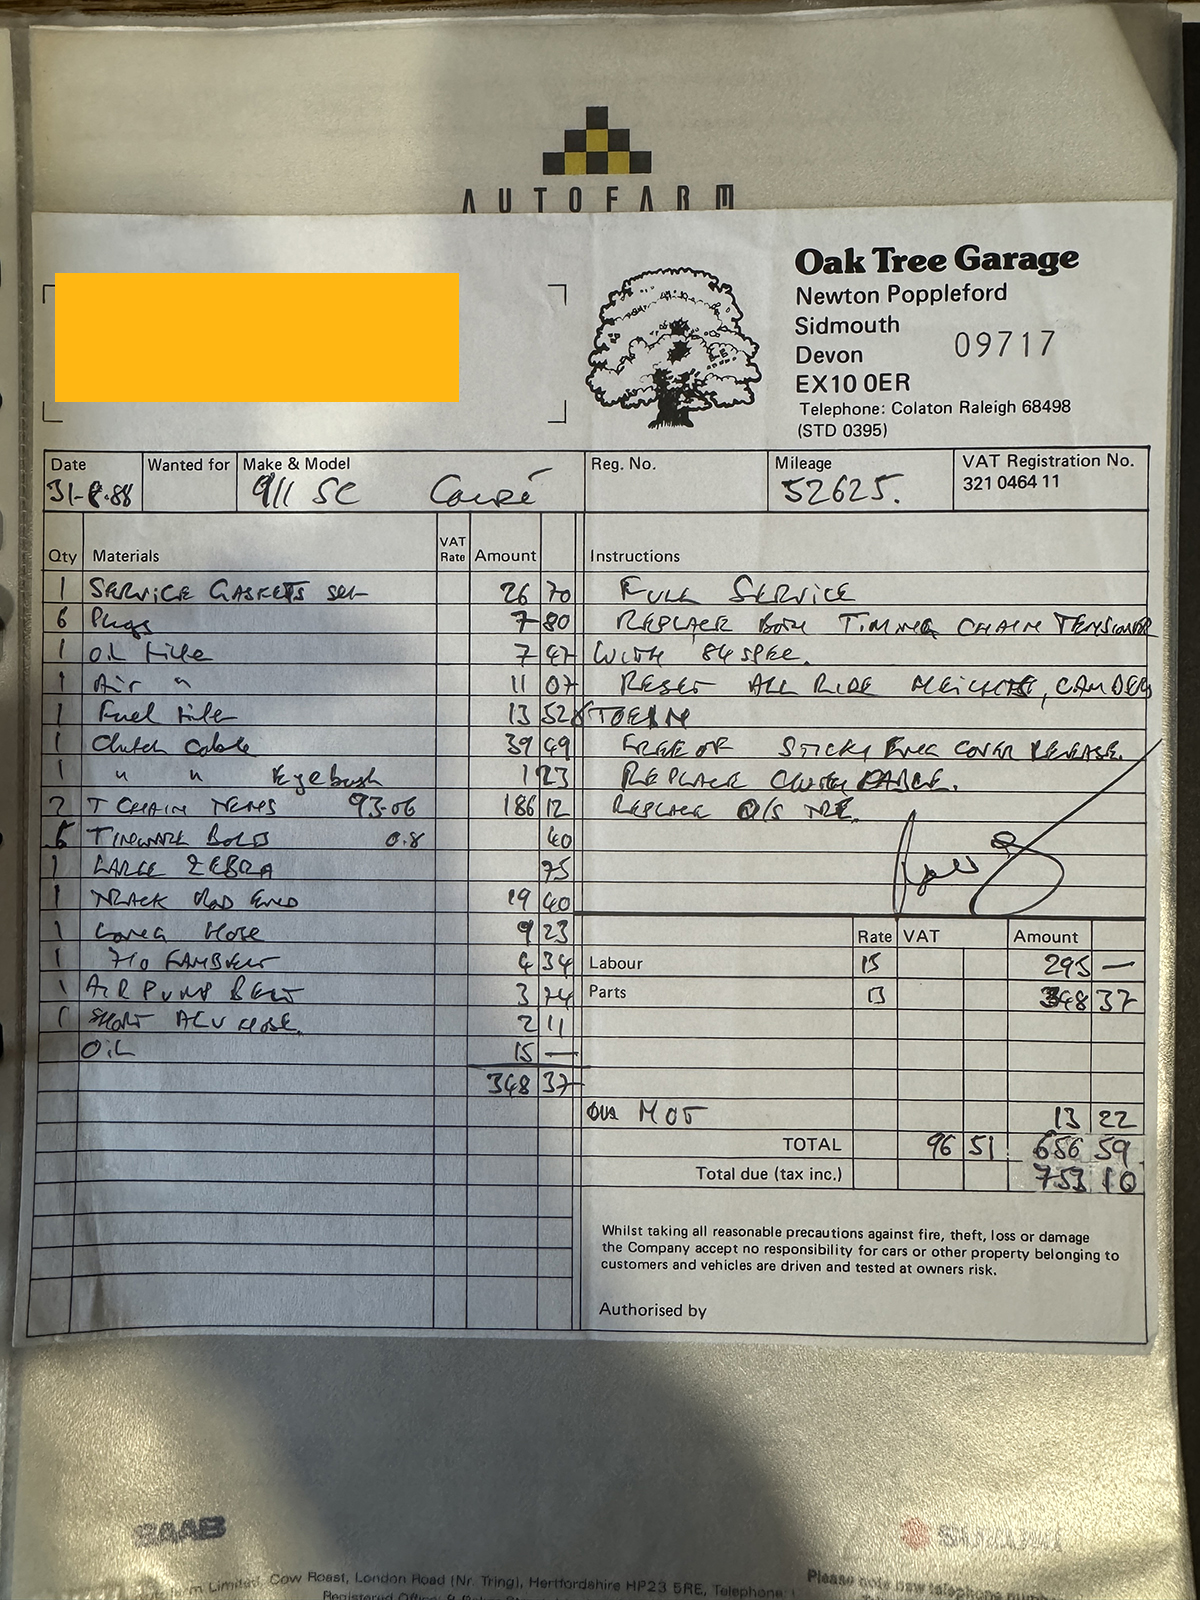 AUTOFARM
Oak Tree Garage
Newton Poppleford
Sidmouth
Devon
09717
EX10 0ER
Telephone: Colaton Raleigh 68498
(STD 0395)
Date
Wanted for
Make & Model
Reg. No.
Mileage
VAT Registration No.
31-8-88
911 SC Coupé
52625.
321 0464 11
Qty Materials VAT Rate Amount Instructions
1 SERVICE GASKETS set 26 70
6 Plugs 7 80
1 OIL Filter 7 47
1 Air " 11 07
1 Fuel Filter 13 52
1 Clutch Cable 39 49
1 " " Eyebush 1 23
2 T CHAIN TENS 93-06 186 12
5 BOLTS 0.8 40
1 LARGE ZEBRA 75
1 TRACK ROD END 19 40
1 Hose 9 23
1 710 FANBELT 4 34
1 AIR PUMP BELT 3 74
1 SHORT HOSE. 2 11
OIL 15 —
348 37
FULL SERVICE
REPLACE BOTH TIMING CHAIN TENSIONER
WITH '84 SPEC.
RESET ALL RIDE HEIGHTS, CAMBER
TOEIN
FREE OF STICKY ENG COVER RELEASE.
REPLACE CLUTCH CABLE.
REPLACE O/S TRE.
Rate VAT Amount
Labour 15 295 —
Parts 15 348 37
MOT 13 22
TOTAL 96 51 656 59
Total due (tax inc.) 753 10
Whilst taking all reasonable precautions against fire, theft, loss or damage
the Company accept no responsibility for cars or other property belonging to
customers and vehicles are driven and tested at owners risk.
Authorised by
SAAB
Limited, Cow Roast, London Road (Nr. Tring), Hertfordshire HP23 5RE, Telephone:
Please note new telephone number
Registered Office: